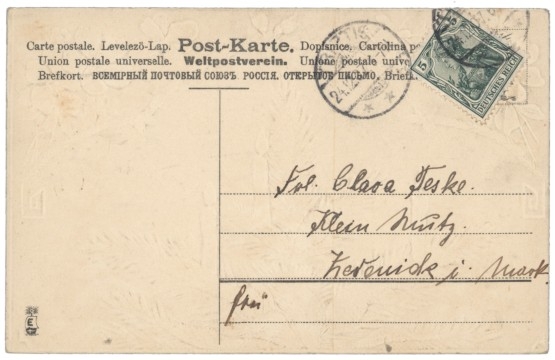 Carte postale. Levelező-Lap. Post-Karte. Dopisnice. Cartolina
Union postale universelle. Weltpostverein. Unione postale
Brefkort. ВСЕМІРНЫЙ ПОЧТОВЫЙ СОЮЗЪ. РОССІЯ. ОТКРЫТОЕ ПИСЬМО.
5
DEUTSCHES REICH
Frl. Clara Teske.
Klein Mutz.
Zedenick i. Mark.
frei
E